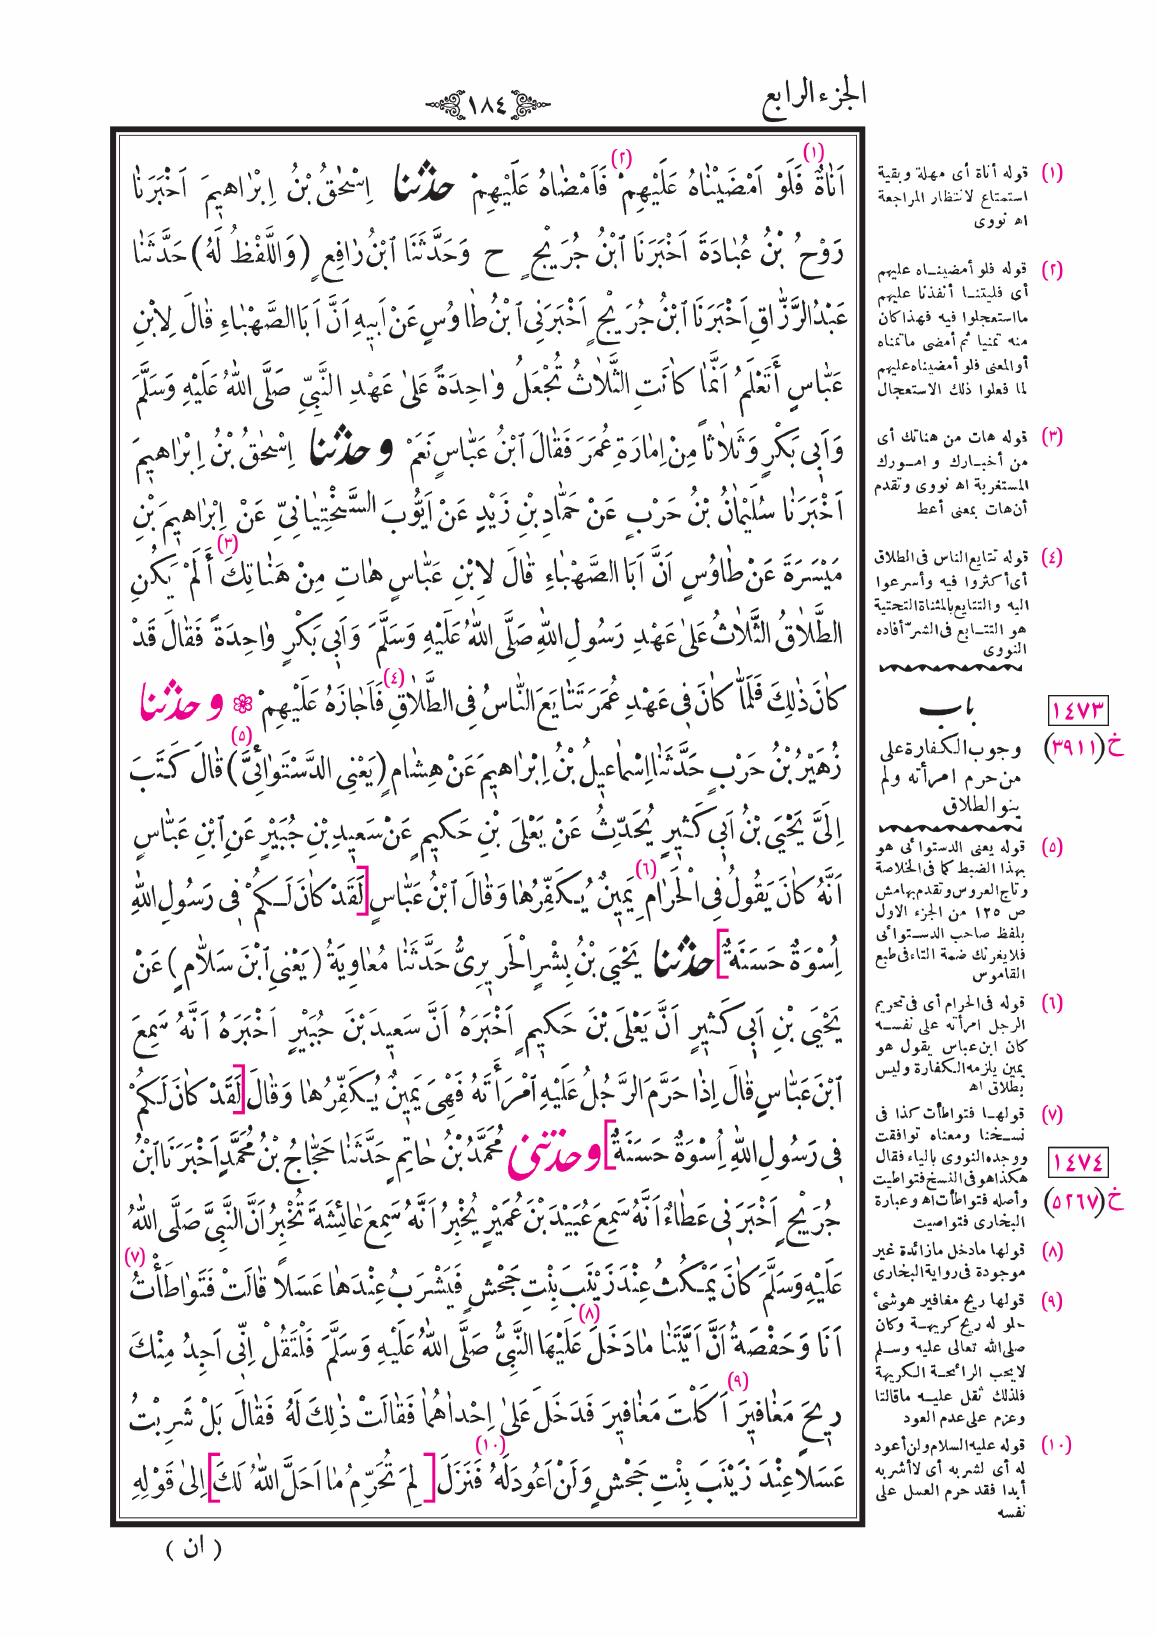 الجزء الرابع
١٨٤
اَنَاةٌ (١) فَلَوْ اَمْضَيْنَاهُ عَلَيْهِمْ (٢) فَاَمْضَاهُ عَلَيْهِمْ حَدَّثَنَا اِسْحٰقُ بْنُ اِبْرَاهِيمَ اَخْبَرَنَا
رَوْحُ بْنُ عُبَادَةَ اَخْبَرَنَا ابْنُ جُرَيْجٍ ح وَحَدَّثَنَا ابْنُ رَافِعٍ (وَاللَّفْظُ لَهُ) حَدَّثَنَا
عَبْدُ الرَّزَّاقِ اَخْبَرَنَا ابْنُ جُرَيْجٍ اَخْبَرَنِى ابْنُ طَاوُسٍ عَنْ اَبِيهِ اَنَّ اَبَا الصَّهْبَاءِ قَالَ لِابْنِ
عَبَّاسٍ أَتَعْلَمُ اَنَّمَا كَانَتِ الثَّلَاثُ تُجْعَلُ وَاحِدَةً عَلَى عَهْدِ النَّبِىِّ صَلَّى اللّٰهُ عَلَيْهِ وَسَلَّمَ
وَاَبِى بَكْرٍ وَثَلَاثاً مِنْ اِمَارَةِ عُمَرَ فَقَالَ ابْنُ عَبَّاسٍ نَعَمْ وحَدَّثَنَا اِسْحٰقُ بْنُ اِبْرَاهِيمَ
اَخْبَرَنَا سُلَيْمَانُ بْنُ حَرْبٍ عَنْ حَمَّادِ بْنِ زَيْدٍ عَنْ اَيُّوبَ السَّخْتِيَانِىِّ عَنْ اِبْرَاهِيمَ بْنِ
مَيْسَرَةَ عَنْ طَاوُسٍ اَنَّ اَبَا الصَّهْبَاءِ قَالَ لِابْنِ عَبَّاسٍ هَاتِ مِنْ هَنَاتِكَ (٣) أَلَمْ يَكُنِ
الطَّلَاقُ الثَّلَاثُ عَلَى عَهْدِ رَسُولِ اللّٰهِ صَلَّى اللّٰهُ عَلَيْهِ وَسَلَّمَ وَاَبِى بَكْرٍ وَاحِدَةً فَقَالَ قَدْ
كَانَ ذٰلِكَ فَلَمَّا كَانَ فِى عَهْدِ عُمَرَ تَتَايَعَ النَّاسُ فِى الطَّلَاقِ (٤) فَاَجَازَهُ عَلَيْهِمْ ❁ وحَدَّثَنَا
زُهَيْرُ بْنُ حَرْبٍ حَدَّثَنَا اِسْمَاعِيلُ بْنُ اِبْرَاهِيمَ عَنْ هِشَامٍ (يَعْنِى الدَّسْتَوَائِىَّ) (٥) قَالَ كَتَبَ
اِلَىَّ يَحْيَى بْنُ اَبِى كَثِيرٍ يُحَدِّثُ عَنْ يَعْلَى بْنِ حَكِيمٍ عَنْ سَعِيدِ بْنِ جُبَيْرٍ عَنِ ابْنِ عَبَّاسٍ
اَنَّهُ كَانَ يَقُولُ فِى الْحَرَامِ (٦) يَمِينٌ يُكَفِّرُهَا وَقَالَ ابْنُ عَبَّاسٍ [لَقَدْ كَانَ لَكُمْ فِى رَسُولِ اللّٰهِ
اُسْوَةٌ حَسَنَةٌ] حَدَّثَنَا يَحْيَى بْنُ بِشْرٍ الْحَرِيرِىُّ حَدَّثَنَا مُعَاوِيَةُ (يَعْنِى ابْنَ سَلَّامٍ) عَنْ
يَحْيَى بْنِ اَبِى كَثِيرٍ اَنَّ يَعْلَى بْنَ حَكِيمٍ اَخْبَرَهُ اَنَّ سَعِيدَ بْنَ جُبَيْرٍ اَخْبَرَهُ اَنَّهُ سَمِعَ
ابْنَ عَبَّاسٍ قَالَ اِذَا حَرَّمَ الرَّجُلُ عَلَيْهِ امْرَأَتَهُ فَهِىَ يَمِينٌ يُكَفِّرُهَا وَقَالَ [لَقَدْ كَانَ لَكُمْ
فِى رَسُولِ اللّٰهِ اُسْوَةٌ حَسَنَةٌ] وحَدَّثَنِى مُحَمَّدُ بْنُ حَاتِمٍ حَدَّثَنَا حَجَّاجُ بْنُ مُحَمَّدٍ اَخْبَرَنَا ابْنُ
جُرَيْجٍ اَخْبَرَنِى عَطَاءٌ اَنَّهُ سَمِعَ عُبَيْدَ بْنَ عُمَيْرٍ يُخْبِرُ اَنَّهُ سَمِعَ عَائِشَةَ تُخْبِرُ اَنَّ النَّبِىَّ صَلَّى اللّٰهُ
عَلَيْهِ وَسَلَّمَ كَانَ يَمْكُثُ عِنْدَ زَيْنَبَ بِنْتِ جَحْشٍ فَيَشْرَبُ عِنْدَهَا عَسَلاً قَالَتْ فَتَوَاطَأْتُ (٧)
اَنَا وَحَفْصَةُ اَنَّ اَيَّتَنَا مَا دَخَلَ (٨) عَلَيْهَا النَّبِىُّ صَلَّى اللّٰهُ عَلَيْهِ وَسَلَّمَ فَلْتَقُلْ اِنِّى اَجِدُ مِنْكَ
رِيحَ مَغَافِيرَ (٩) اَكَلْتَ مَغَافِيرَ فَدَخَلَ عَلَى اِحْدَاهُمَا فَقَالَتْ ذٰلِكَ لَهُ فَقَالَ بَلْ شَرِبْتُ
عَسَلاً عِنْدَ زَيْنَبَ بِنْتِ جَحْشٍ وَلَنْ اَعُودَ لَهُ (١٠) فَنَزَلَ [لِمَ تُحَرِّمُ مَا اَحَلَّ اللّٰهُ لَكَ] اِلَى قَوْلِهِ
(١) قوله أناة أى مهلة وبقية
استمتاع لانتظار المراجعة
اه نووى
(٢) قوله فلو أمضيناه عليهم
أى فليتنا أنفذنا عليهم
ما استعجلوا فيه فهذا كان
منه تمنيا ثم أمضى ما تمناه
أو المعنى فلو أمضيناه عليهم
لما فعلوا ذلك الاستعجال
(٣) قوله هات من هناتك أى
من أخبارك وامورك
المستغربة اه نووى وتقدم
أن هات بمعنى أعط
(٤) قوله تتايع الناس فى الطلاق
أى أكثروا فيه وأسرعوا
اليه والتتايع بالمثناة التحتية
هو التتابع فى الشرّ أفاده
النووى
باب
وجوب الكفارة على
من حرم امرأته ولم
ينو الطلاق
١٤٧٣
خ (٣٩١١)
(٥) قوله يعنى الدستوائى هو
بهذا الضبط كما فى الخلاصة
وتاج العروس وتقدم بهامش
ص ١٢٥ من الجزء الاول
بلفظ صاحب الدستوائى
فلا يغرنك ضمة التاء فى طبع
القاموس
(٦) قوله فى الحرام أى فى تحريم
الرجل امرأته على نفسه
كان ابن عباس يقول هو
يمين يلزمه الكفارة وليس
بطلاق اه
(٧) قولها فتواطأت كذا فى
نسخنا ومعناه توافقت
ووجده النووى بالياء فقال
هكذا هو فى النسخ فتواطيت
وأصله فتواطأت اه وعبارة
البخارى فتواصيت
١٤٧٤
خ (٥٢٦٧)
(٨) قولها مادخل ما زائدة غير
موجودة فى رواية البخارى
(٩) قولها ريح مغافير هو شىء
حلو له ريح كريهة وكان
صلى الله تعالى عليه وسلم
لا يحب الرائحة الكريهة
فلذلك ثقل عليه ما قالتا
وعزم على عدم العود
(١٠) قوله عليه السلام ولن أعود
له أى لشربه أى لا أشربه
أبدا فقد حرم العسل على
نفسه
( ان )